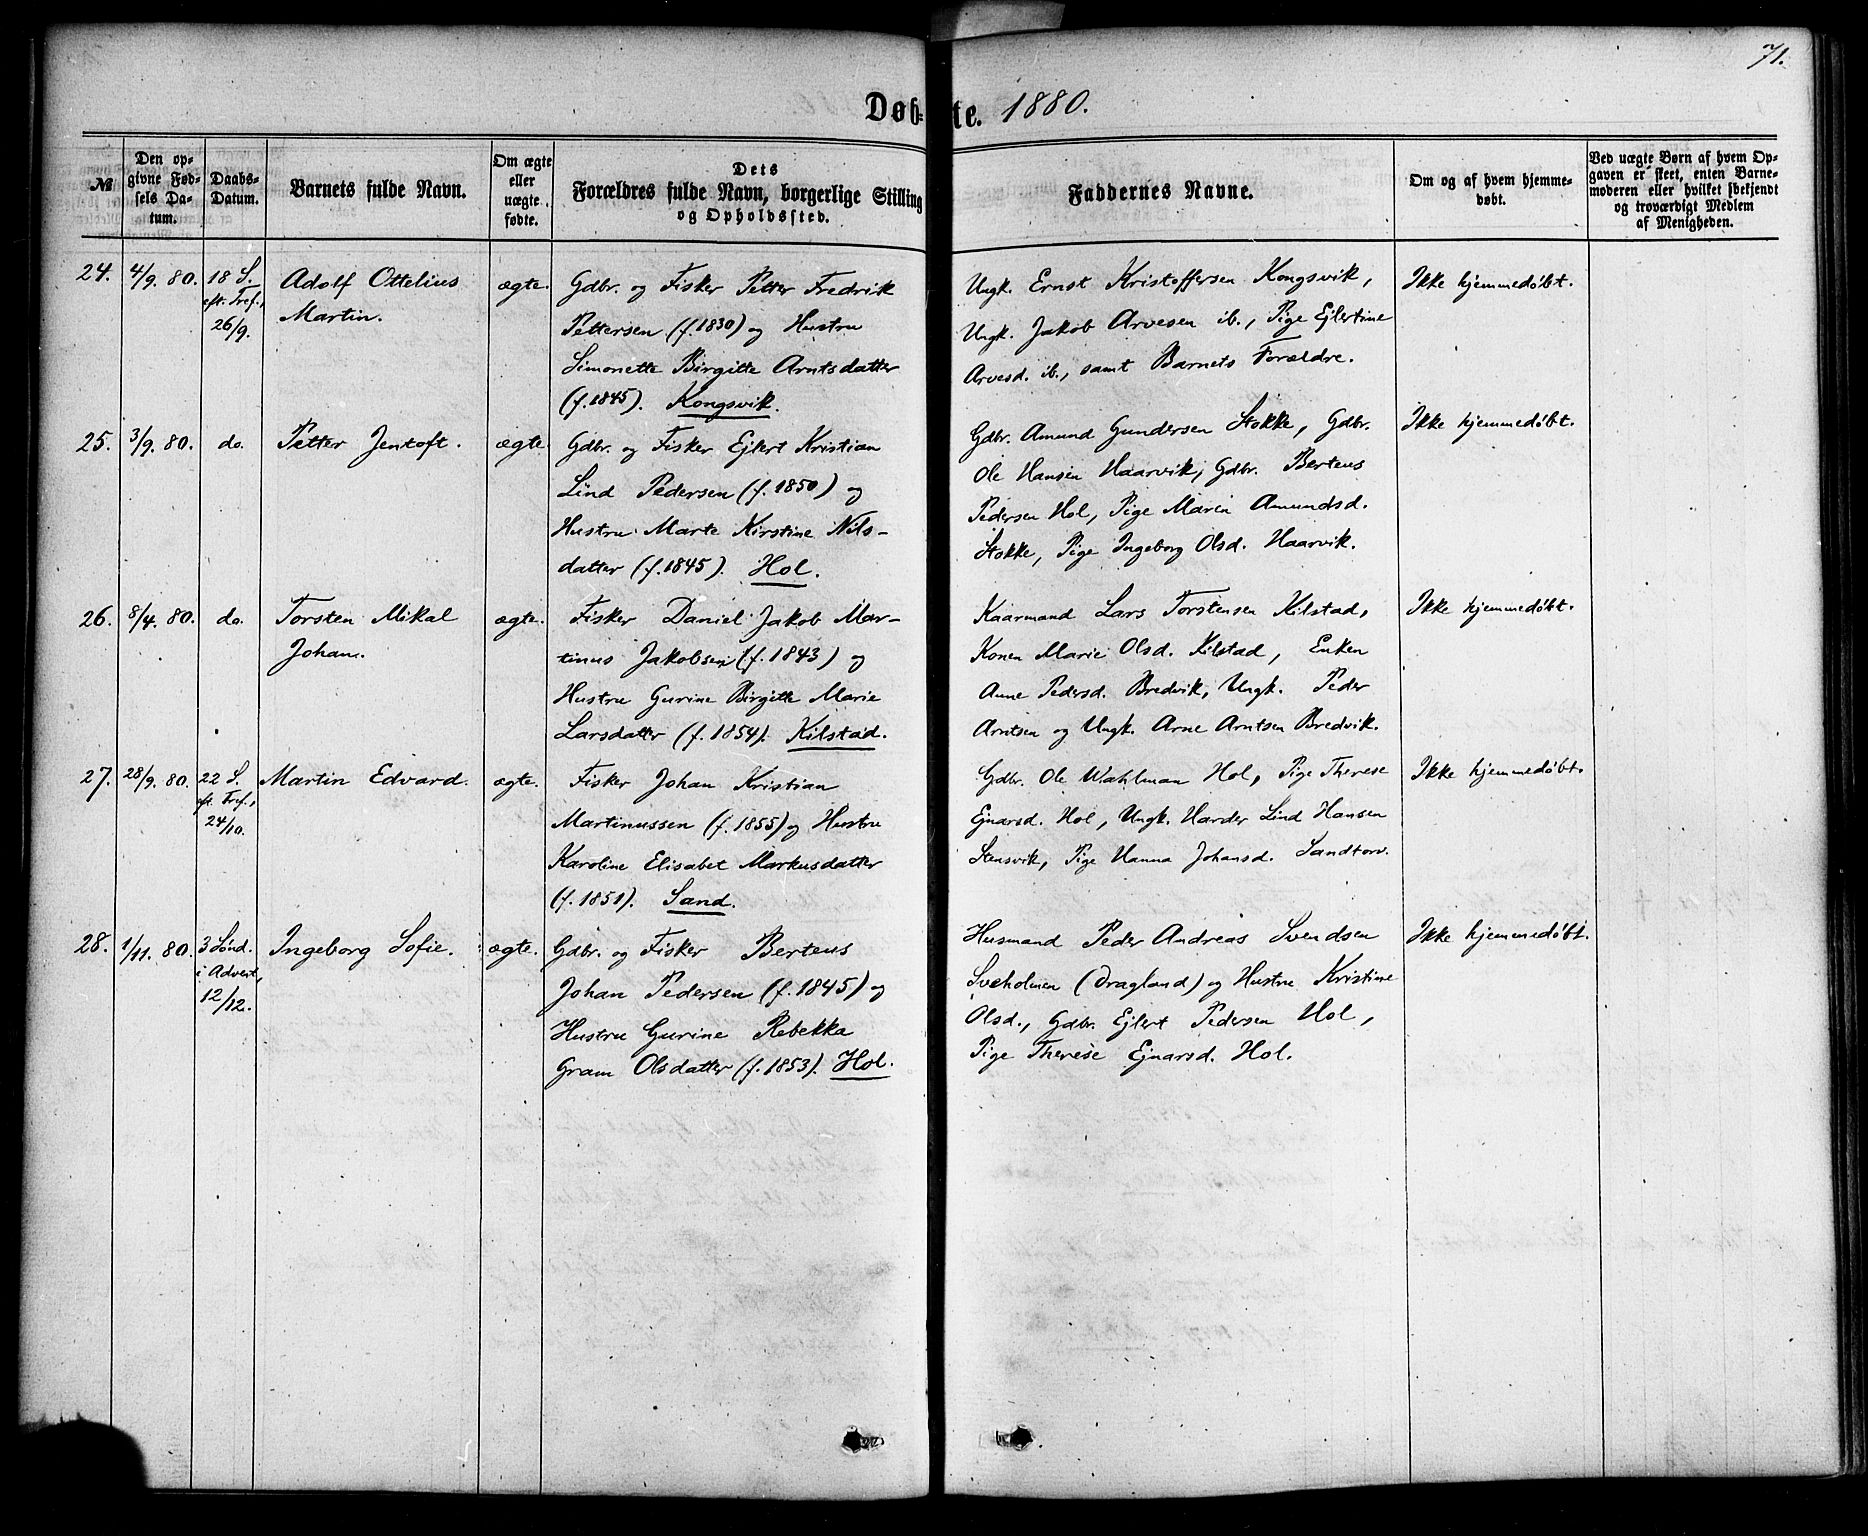 71.
Døb-te. 1880.
№
Den op-
givne Fød-
sels Da-
tum.
Daabs-
Datum.
Barnets fulde Navn.
Om ægte
eller
uægte
fødte.
Dets
Forældres fulde Navn, borgerlige Stilling
og Opholdssted.
Faddernes Navne.
Om og af hvem hjemme-
døbt.
Ved uægte Børn af hvem Op-
gaven er skeet, enten Barne-
moderen eller hvilket sbekjendt
og troværdigt Medlem
af Menigheden.
24. 4/9. 80. 18 S.
eft. Tref.,
26/9.
Adolf Ottelius
Martin.
ægte.
Gdbr. og Fisker Petter Fredrik
Pettersen (f. 1830) og Hustru
Simonette Birgitte Arntsdatter
(f. 1845). Kongsvik.
Ungk. Ernst Kristoffersen Kongsvik,
Ungk. Jakob Arvesen ib., Pige Ejlertine
Arvesd. ib., samt Barnets Forældre.
Ikke hjemmedøbt.
25. 3/9. 80. do.
Petter Jentoft.
ægte.
Gdbr. og Fisker Ejlert Kristian
Lind Pedersen (f. 1850) og
Hustru Marte Kirstine Nils-
datter (f. 1845). Hol.
Gdbr. Amund Gundersen Stokke, Gdbr.
Ole Hansen Haarvik, Gdbr. Berteus
Pedersen Hol, Pige Maren Amundsd.
Stokke, Pige Ingeborg Olsd. Haarvik.
Ikke hjemmedøbt.
26. 8/4. 80. do.
Torsten Mikal
Johan.
ægte.
Fisker Daniel Jakob Mar-
tinus Jakobsen (f. 1843) og
Hustru Gurine Birgitte Marie
Larsdatter (f. 1854). Kilstad.
Kaarmand Lars Torstensen Kilstad,
Konen Marie Olsd. Kilstad, Enken
Anne Pedersd. Bredvik, Ungk. Peder
Arntsen og Ungk. Arne Arntsen Bredvik.
Ikke hjemmedøbt.
27. 28/9. 80. 22 S.
eft. Tref.,
24/10.
Martin Edvard.
ægte.
Fisker Johan Kristian
Martinussen (f. 1855) og Hustru
Karoline Elisabet Markusdatter
(f. 1851). Sand.
Gdbr. Ole Wahlman Hol, Pige Therese
Ejnarsd. Hol, Ungk. Harder Lind Hansen
Stensvik, Pige Hanna Johansd. Sandtorv.
Ikke hjemmedøbt.
28. 1/11. 80. 3 Sønd.
i Advent,
12/12.
Ingeborg Sofie.
ægte.
Gdbr. og Fisker Berteus
Johan Pedersen (f. 1845) og
Hustru Gurine Rebekka
Gram Olsdatter (f. 1853). Hol.
Husmand Peder Andreas Svendsen
Sveholmen (Dragland) og Hustru Kristine
Olsd., Gdbr. Ejlert Pedersen Hol,
Pige Therese Ejnarsd. Hol.
Ikke hjemmedøbt.